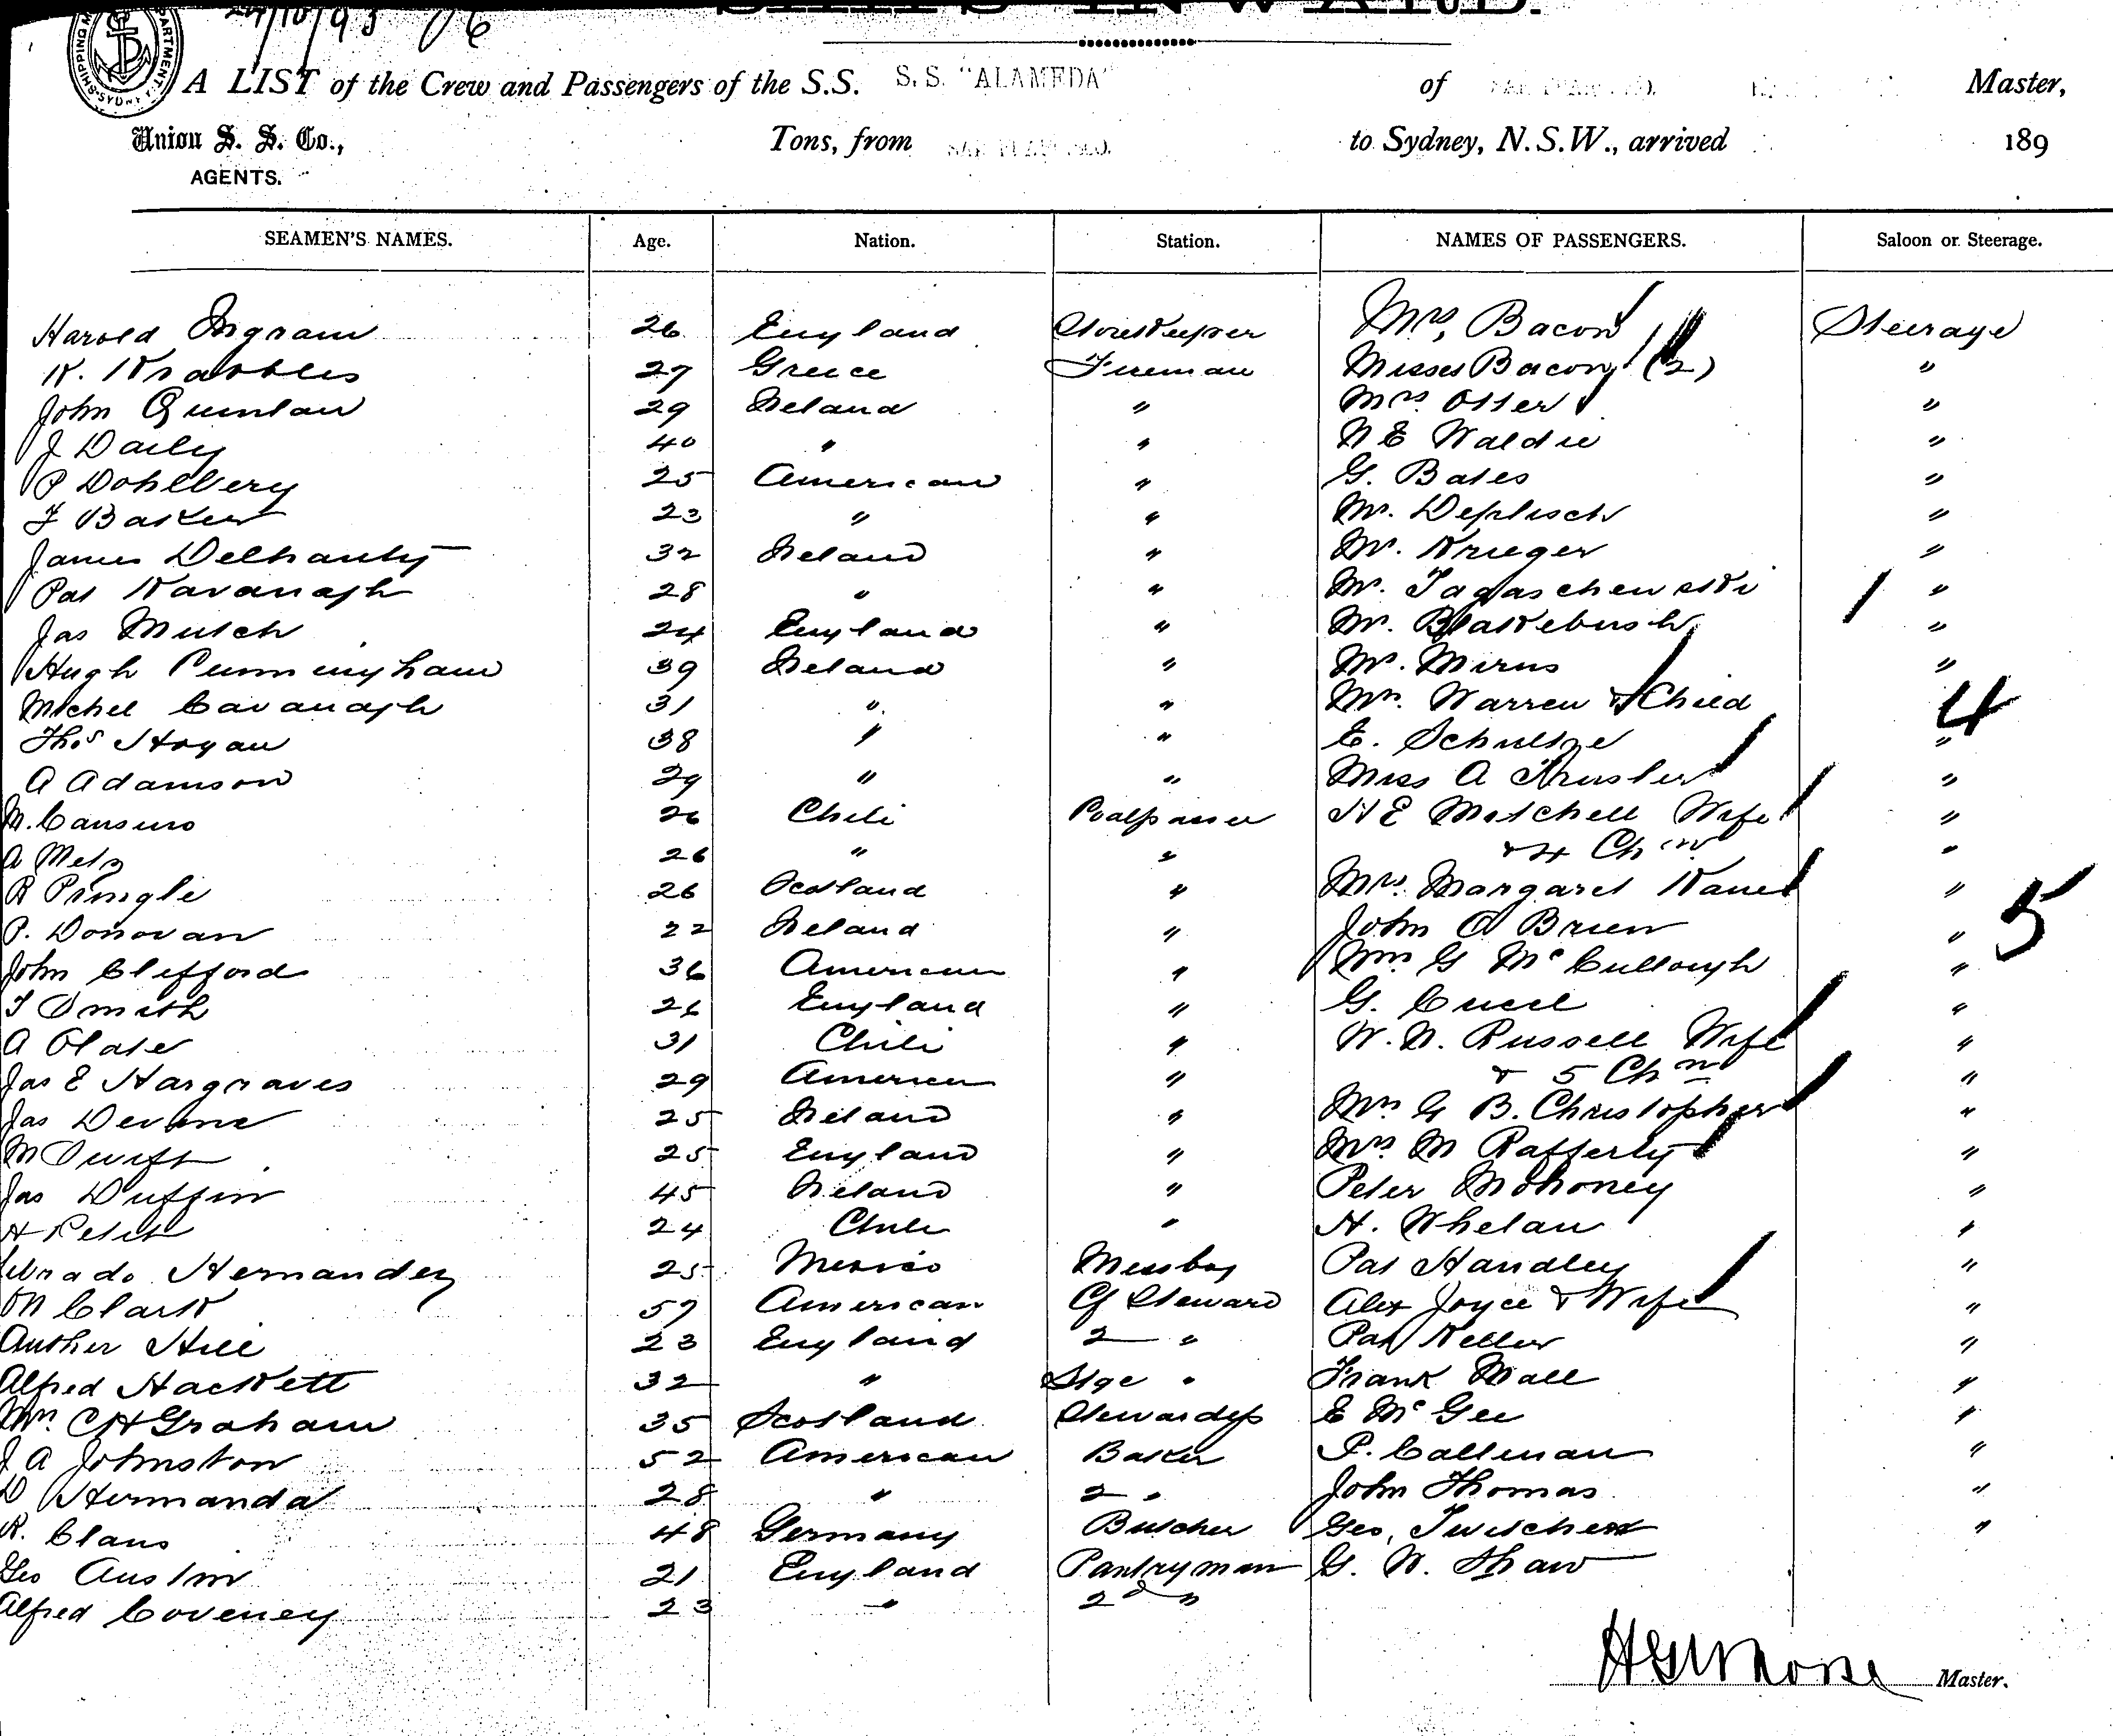 24/10/93 16
SHIPS INWARD.
A LIST of the Crew and Passengers of the S.S. S.S. "ALAMEDA" of Master,
Union S. S. Co., Tons, from SAN FRANCISCO. to Sydney, N.S.W., arrived 189
AGENTS.
SEAMEN'S NAMES. Age. Nation. Station. NAMES OF PASSENGERS. Saloon or Steerage.
Harold Ingram 26 England Storekeeper Mrs, Bacon Steerage
K. 27 Greece Fireman Misses Bacon (2) "
John Quinlan 29 Ireland " Mrs Otter "
J Daily 40 " " N E Waldie "
P Dohlbery 25 American " G. Bates "
F Baker 23 " " Mr. Deplisch "
James Delhanty 32 Ireland " Mr. Krieger "
Pat Kavanagh 28 " " Mr. Tagaschewski "
Jas Mutch 24 England " Mr. Blakebush "
Hugh Cunningham 39 Ireland " Mr. Mirus "
Michel Cavanagh 31 " " Mrs. Warren & Child 4 "
Thos Hogan 38 " " E. Schultze "
A Adamson 29 " " Miss A "
M. Cansino 26 Chili Coalpasser H E Mitchell Wife "
A Metz 26 " " & 4 Chn "
R Pringle 26 Scotland " Mrs. Margaret Kane "
P. Donovan 22 Ireland " John O Brien " 5
John Clifford 36 American " Wm G McCullough "
T Smith 26 England " G. Cecil "
A Olate 31 Chili " W. N. Russell Wife "
Jas E Hargraves 29 American " & 5 Chn "
Jas Devine 25 Ireland " Mrs G B. Christopher "
M Swift 25 England " Mrs M Rafferty "
Jas Duffin 45 Ireland " Peter Mohoney "
H Petit 24 Chili " H. Whelan "
Hernandez 25 Mexico Messboy Pat Handley "
Clark 57 American Cf Steward Alex Joyce & Wife "
Auther Hill 23 England 2 " Pat Keller "
Alfred Hackett 32 " Stge " Frank Mall "
Mrs. C H Graham 35 Scotland Stewardess E McGee "
J A Johnston 52 American Baker P. Callinan "
D Hermanda 28 " 2 " John Thomas "
R. Claus 48 Germany Butcher Geo, Twitchen "
Geo Austin 21 England Pantryman G. W. Shaw
Alfred Coveney 23 " 2d "
HGMorse Master.